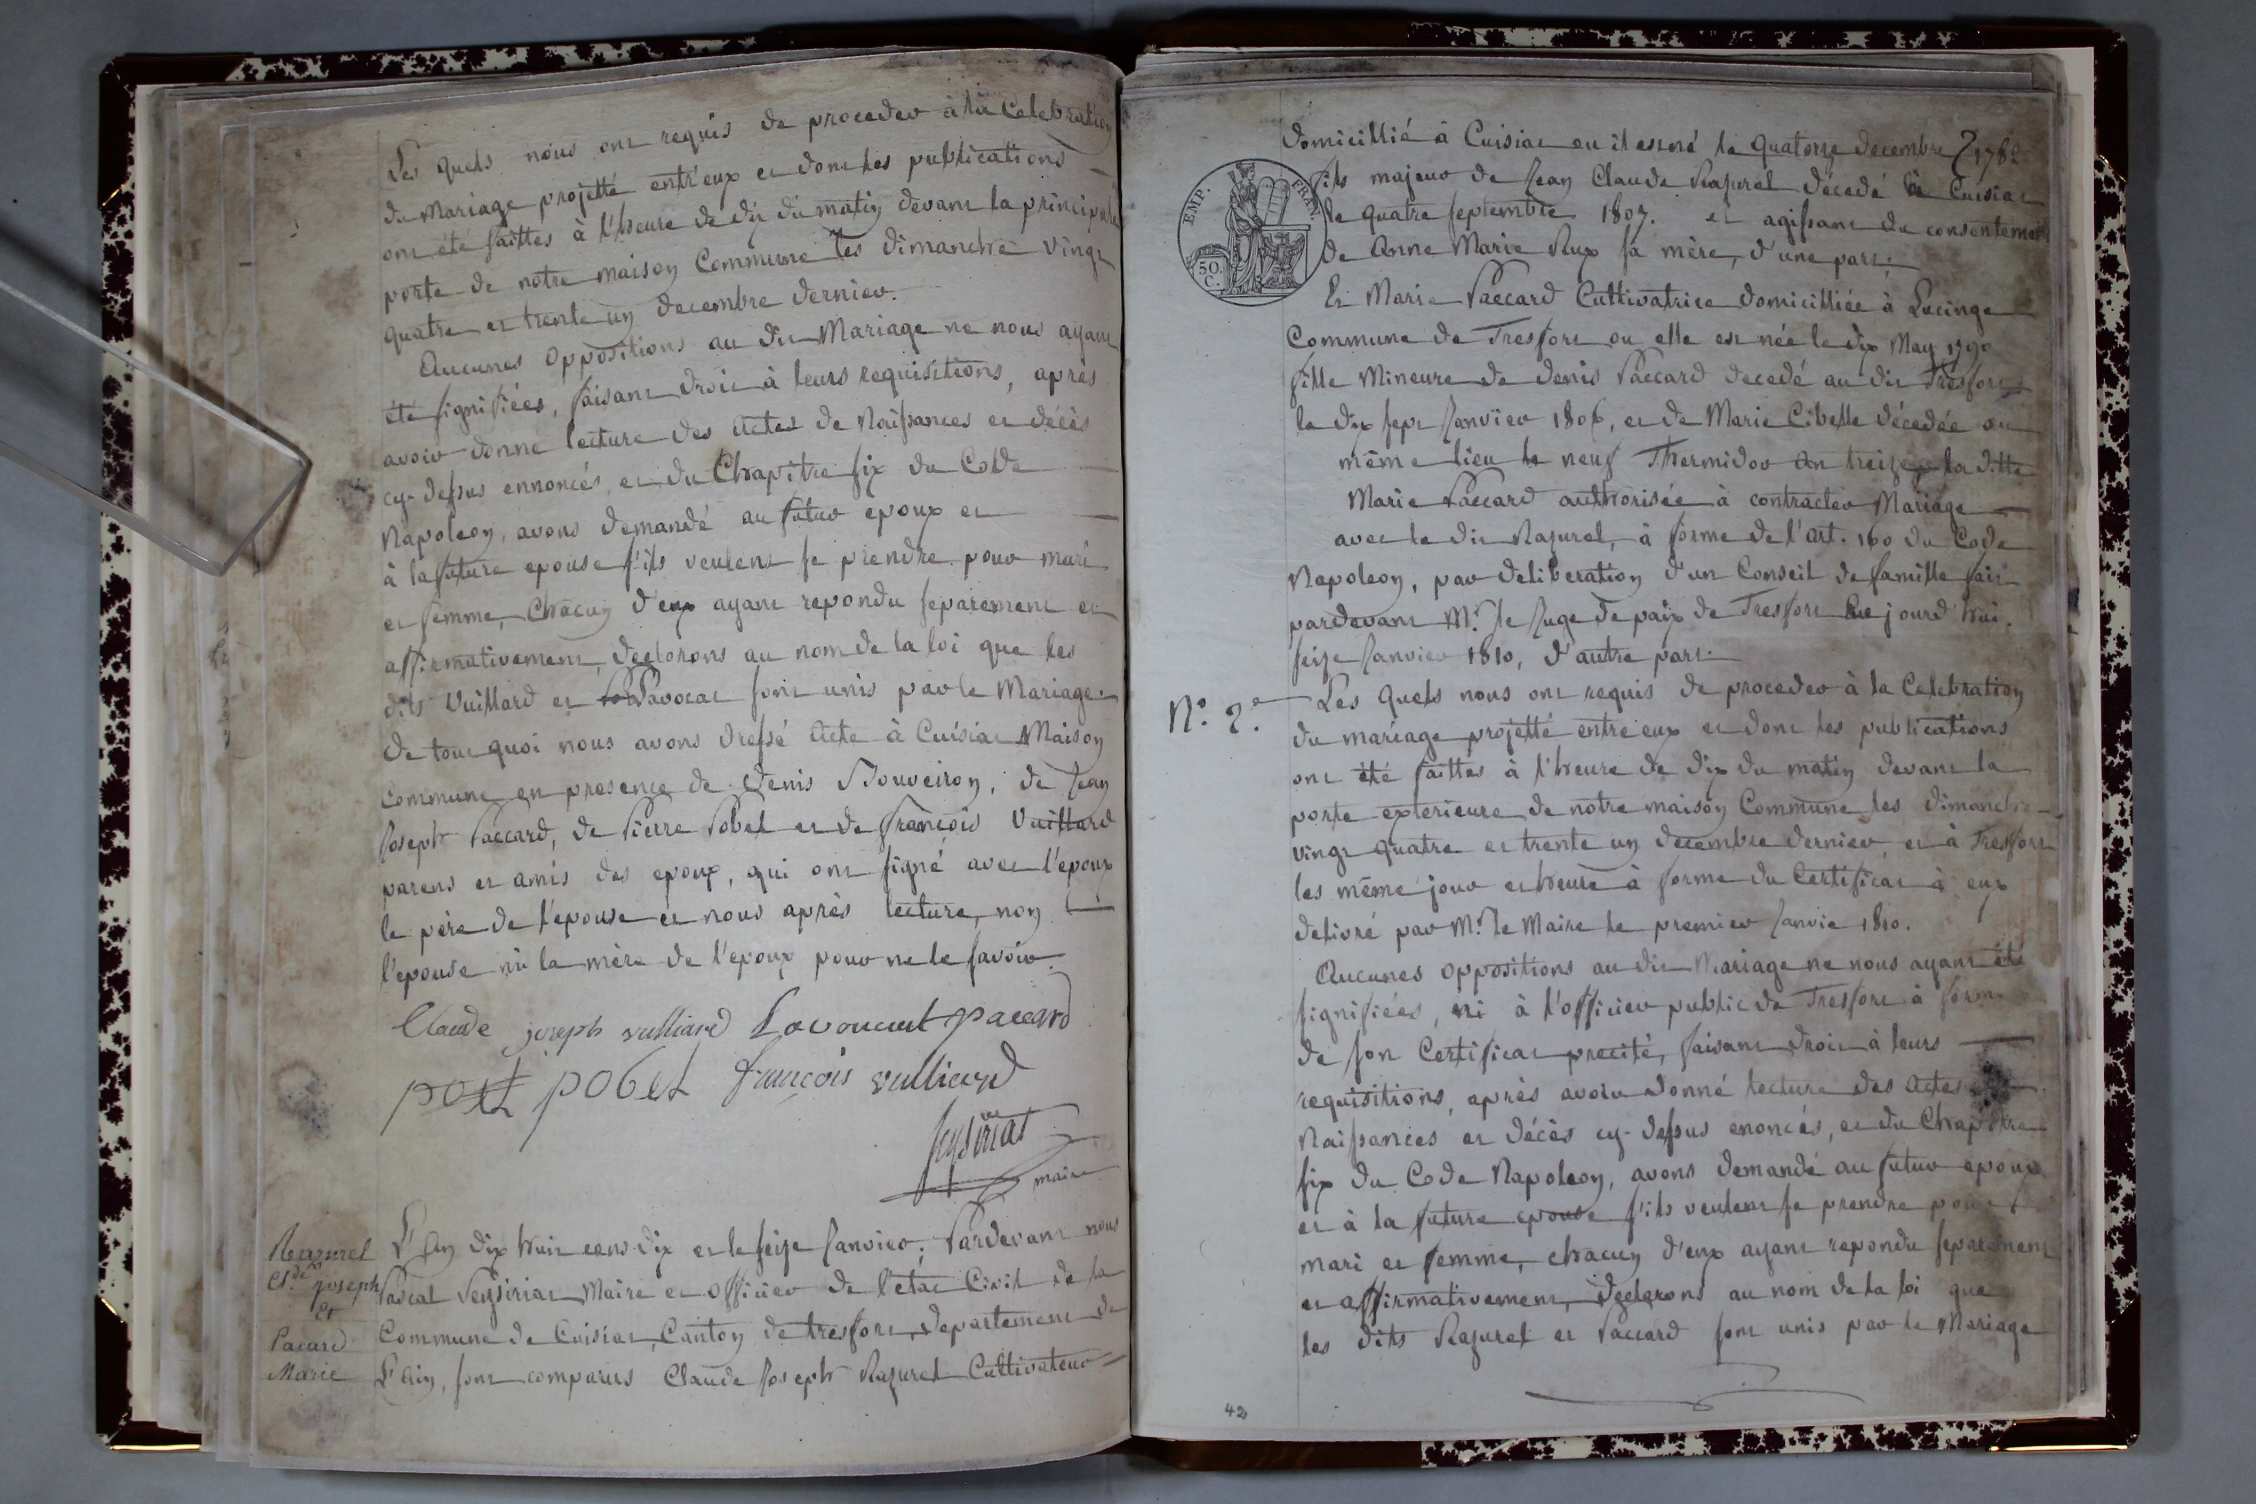 Les quels nous ont requis de proceder à la Celebration
du Mariage projetté entr'eux et dont les publications
ont été faittes à l'heure de dix du matin devant la principale
porte de notre maison Commune les dimanche vingt
quatre et trente un decembre dernier.
Aucunes oppositions au dit Mariage ne nous ayant
été signifiées, faisant droit à leurs requisitions, après
avoir donné lecture des actes de Naissances et décès
cy-dessus ennoncés, et du Chapitre six du Code
Napoleon, avons demandé au futur epoux et
à la future epouse s'ils veulent se prendre pour mari
et femme, Chacun d'eux ayant repondu separement et
affirmativement, declarons au nom de la loi que les
dits Vuillard et Lavocat sont unis par le Mariage.
de tout quoi nous avons dressé acte à Cuisiat Maison
commune en presence de Denis Bouveiron, de Jean
Joseph Paccard, de Pierre Pobel et de François Vuillard
parens et amis des epoux, qui ont signé avec l'epoux
le père de l'epouse et nous après lecture, non
l'epouse ni la mère de l'epoux pour ne le savoir.
Claude joseph vulliard Lavoucat paccard
pobel françois vulliard
Peysiriat
maire
Razurel
Cl.de joseph
et
Pacard
Marie
L'an dix huit cent dix et le seize Janvier, Pardevant nous
Pascal Peysiriat Maire et officier de l'etat Civil de la
Commune de Cuisiat, Canton de tresfort, departement de
L'ain, sont comparus Claude Joseph Razurel Cultivateur
EMP. FRAN.
50.
C.
domicillié à Cuisiat ou il est né le quatorze decembre 1782
fils majeur de Jean Claude Razurel décedé à Cuisiat
le quatre septembre 1807. et agissant du consentement
de Anne Marie Rux sa mère, d'une part.
Et Marie Paccard Cultivatrice domicilliée à Lucinge
Commune de Tresfort ou elle est née le dix May 1790
fille Mineure de denis Paccard decedé au dit Tresfort
le dix sept Janvier 1806, et de Marie Cibelle décedée au
même lieu le neuf Thermidor an treize, la ditte
Marie Paccard authorisée à contracter Mariage
avec le dit Razurel, à forme de l'art. 160 du Code
Napoleon, par deliberation d'un Conseil de famille fait
pardevant Mr. le Juge de paix de Tresfort Ce jourd'hui
seize Janvier 1810, d'autre part.
N°. 2e.
Les quels nous ont requis de proceder à la Celebration
du mariage projetté entre eux et dont les publications
ont été faittes à l'heure de dix du matin devant la
porte exterieure de notre maison Commune les dimanche
vingt quatre et trente un decembre dernier, et à Tresfort
les même jour et heure à forme du Certificat à eux
delivré par Mr. le Maire le premier Janvie 1810.
Aucunes oppositions au dit Mariage ne nous ayant été
signifiées, ni à l'officier public de Tresfort à forme
de son Certificat precité, faisant droit à leurs
requisitions, après avoir donné lecture des actes
Naissances et décès cy-dessus enoncés, et du Chapitre
six du Code Napoleon, avons demandé au futur epoux
et à la future epouse s'ils veulent se prendre pour
mari et femme, chacun d'eux ayant repondu separement
et affirmativement, declarons au nom de la loi que
les dits Razurel et Paccard sont unis par le Mariage
42